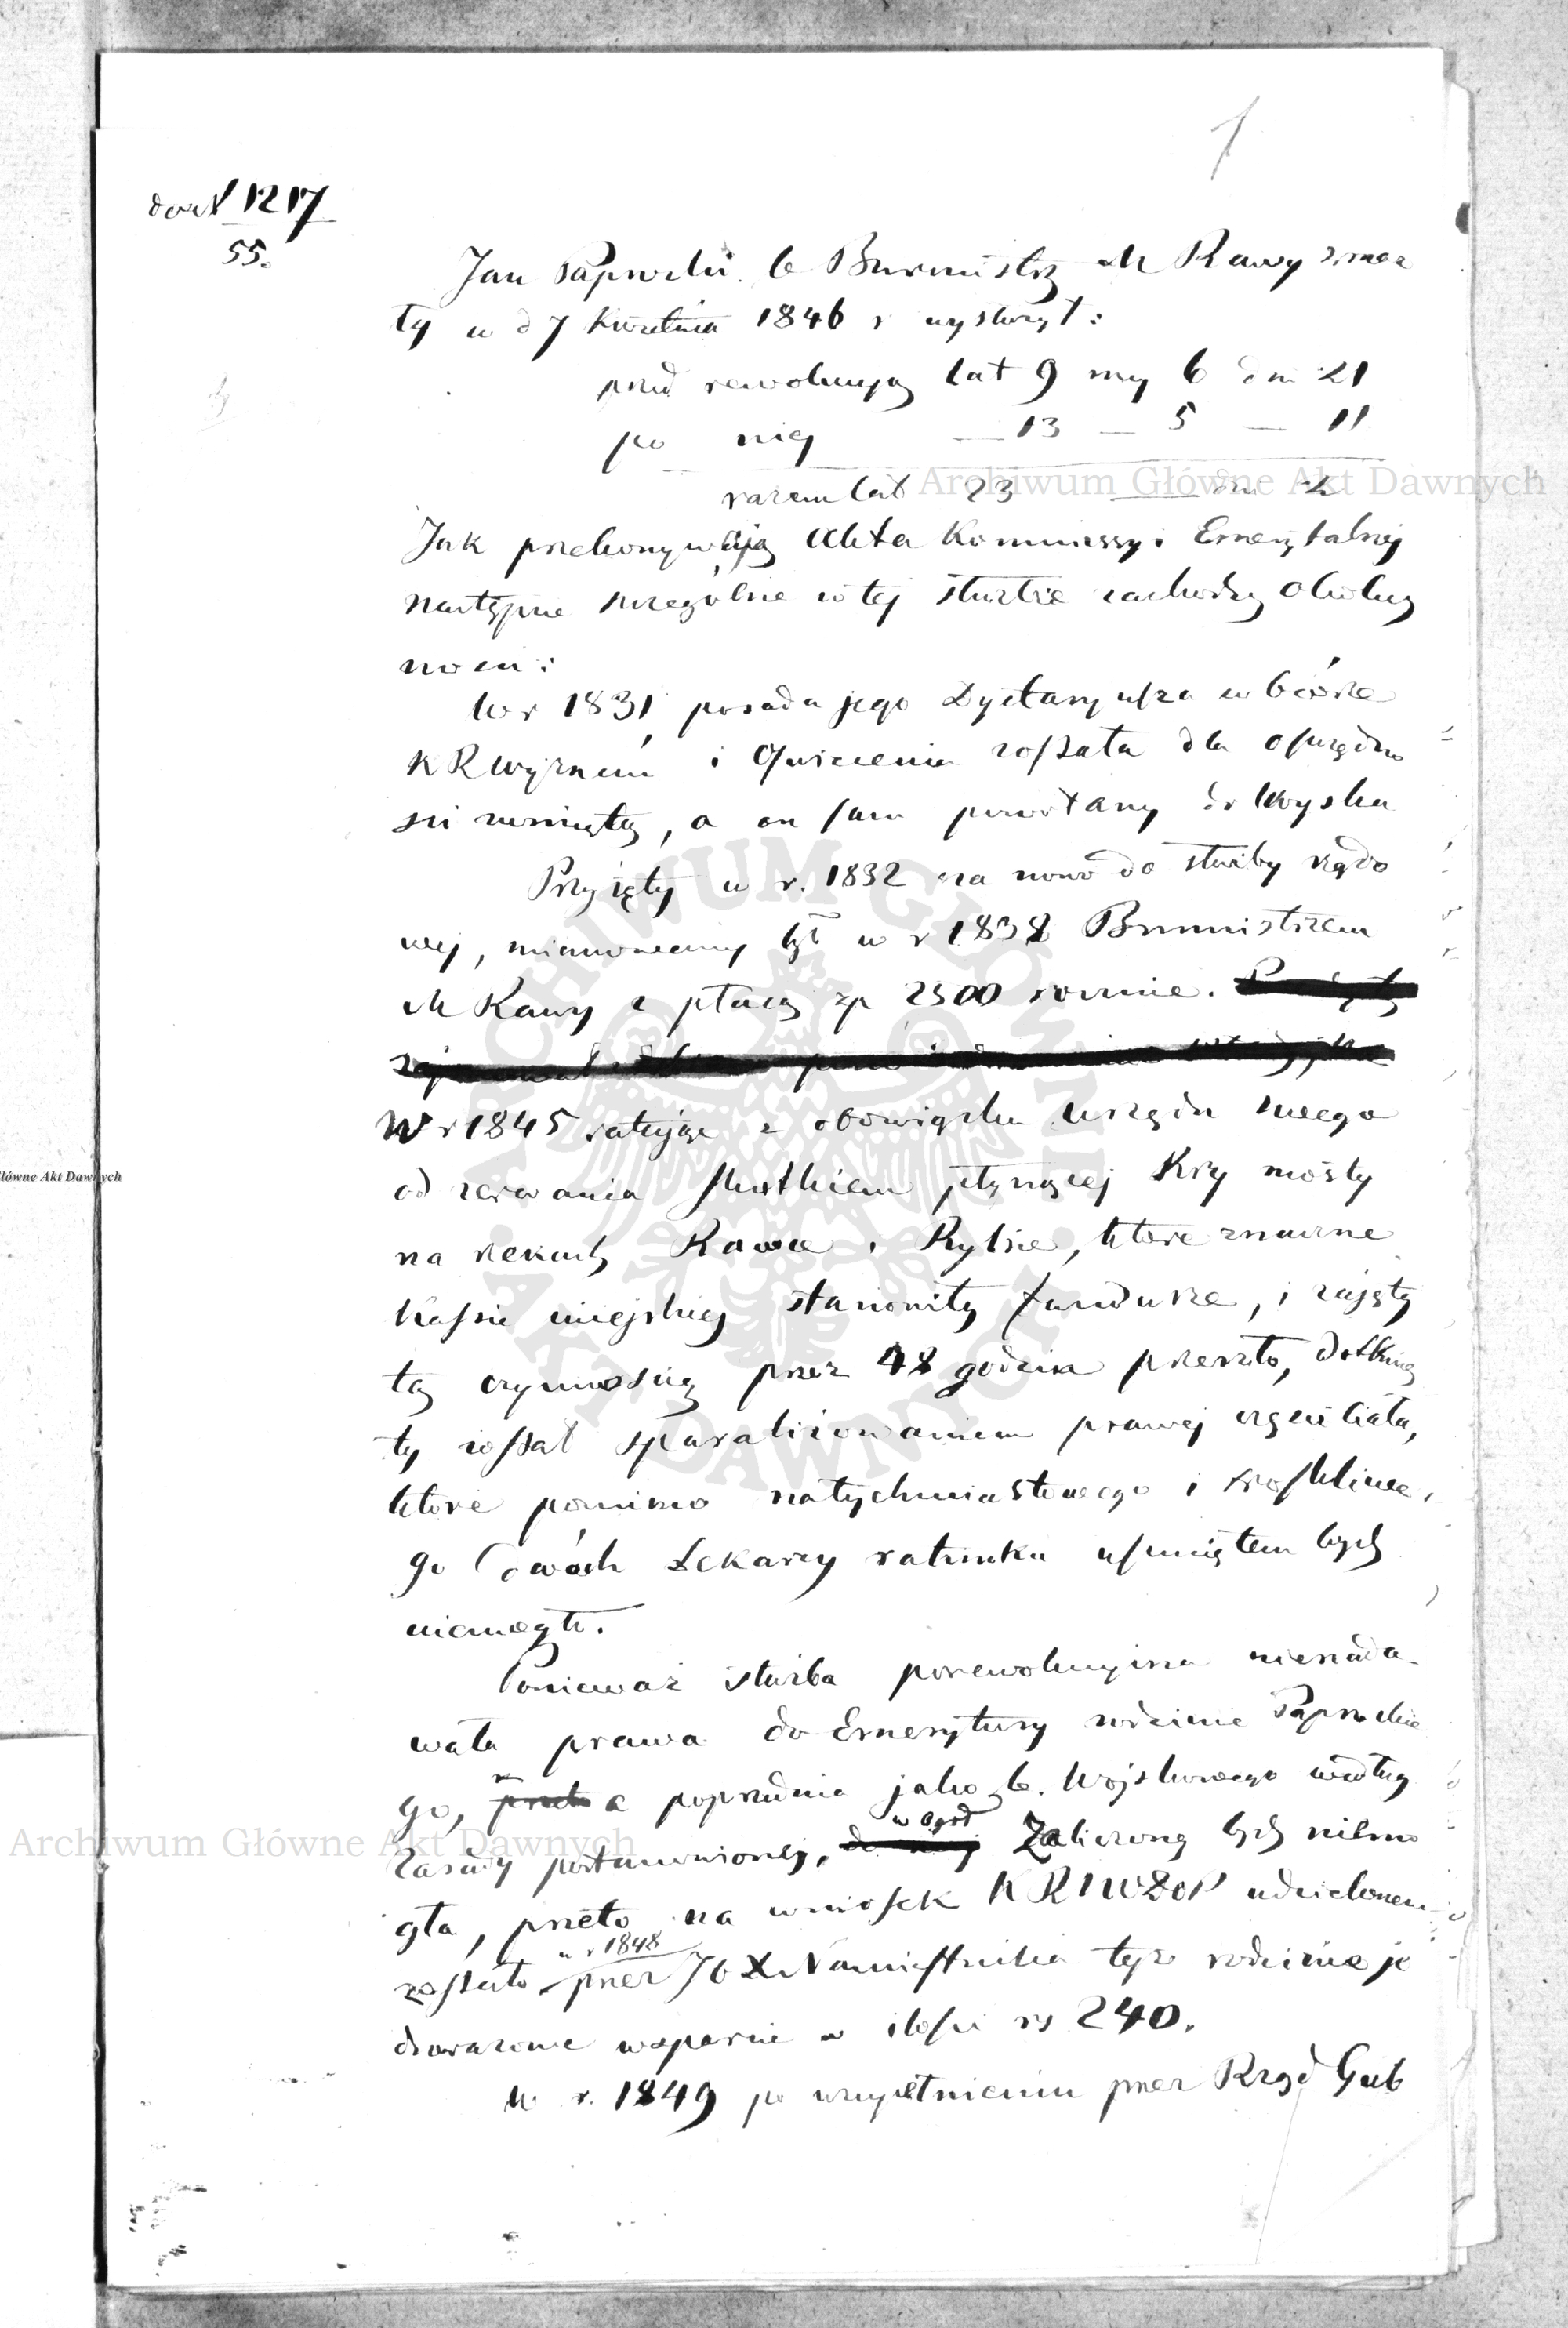 1
do N 1217
55.
Jan Paprocki b Burmistrz M Rawy zmar
ły w d 7 Kwietnia 1846 r wysłużył:
przed rewolucyą lat 9 my 6 dni 21
po nię — 13 — 5 — 11
razem lat 23 — dni 2
Jak przekonywają Akta Kommissyi Emerytalnej
następne szczególne w tej służbie zachodzą okolicz
ności:
W r 1831 posada jego Dyetaryusza w biórze
K R Wyznań i Oświecenia została dla oszczędno
ści zwinięta, a on sam powołany do Woyska
Przyięty w r. 1832 na nowo do służby rządo
wej, mianowany był w r 1838 Burmistrzem
M Rawy z płacą zp 2500 rocznie.
W r 1845 ratując z obowiązku urzędu swego
od zerwania skutkiem płynącej Kry mosty
na rzekach Rawce i Rylce, które znaczne
Kassie miejskiej stanowiły fundusze, i zajęty
tą czynnością przez 48 godzin przeszło, dotknię
ty został sparaliżowaniem prawej części ciała,
które pomimo natychmiastowego i troskliwe,
go dwóch Lekarzy ratunku usuniętem bydź
niemogło.
Ponieważ służba porewolucyjna nienada-
wała prawa do Emerytury rodzinie Paprockie
go, a poprzednia jako b. Wojskowego według
zasady postanowionej, w ogół Zaliczoną bydź niemo
gła, przeto na wniosek K R S W D i D udzielonem
zostało w r 1848 przez J O X Namiestnika tejże rodzinie je
dnorazowe wsparcie w ilości rs 240.
W r. 1849 po uzupełnieniu przez Rząd Gub
Archiwum Główne Akt Dawnych
Archiwum Główne Akt Dawnych
Główne Akt Dawnych
ARCHIWUM GŁÓWNE AKT DAWNYCH